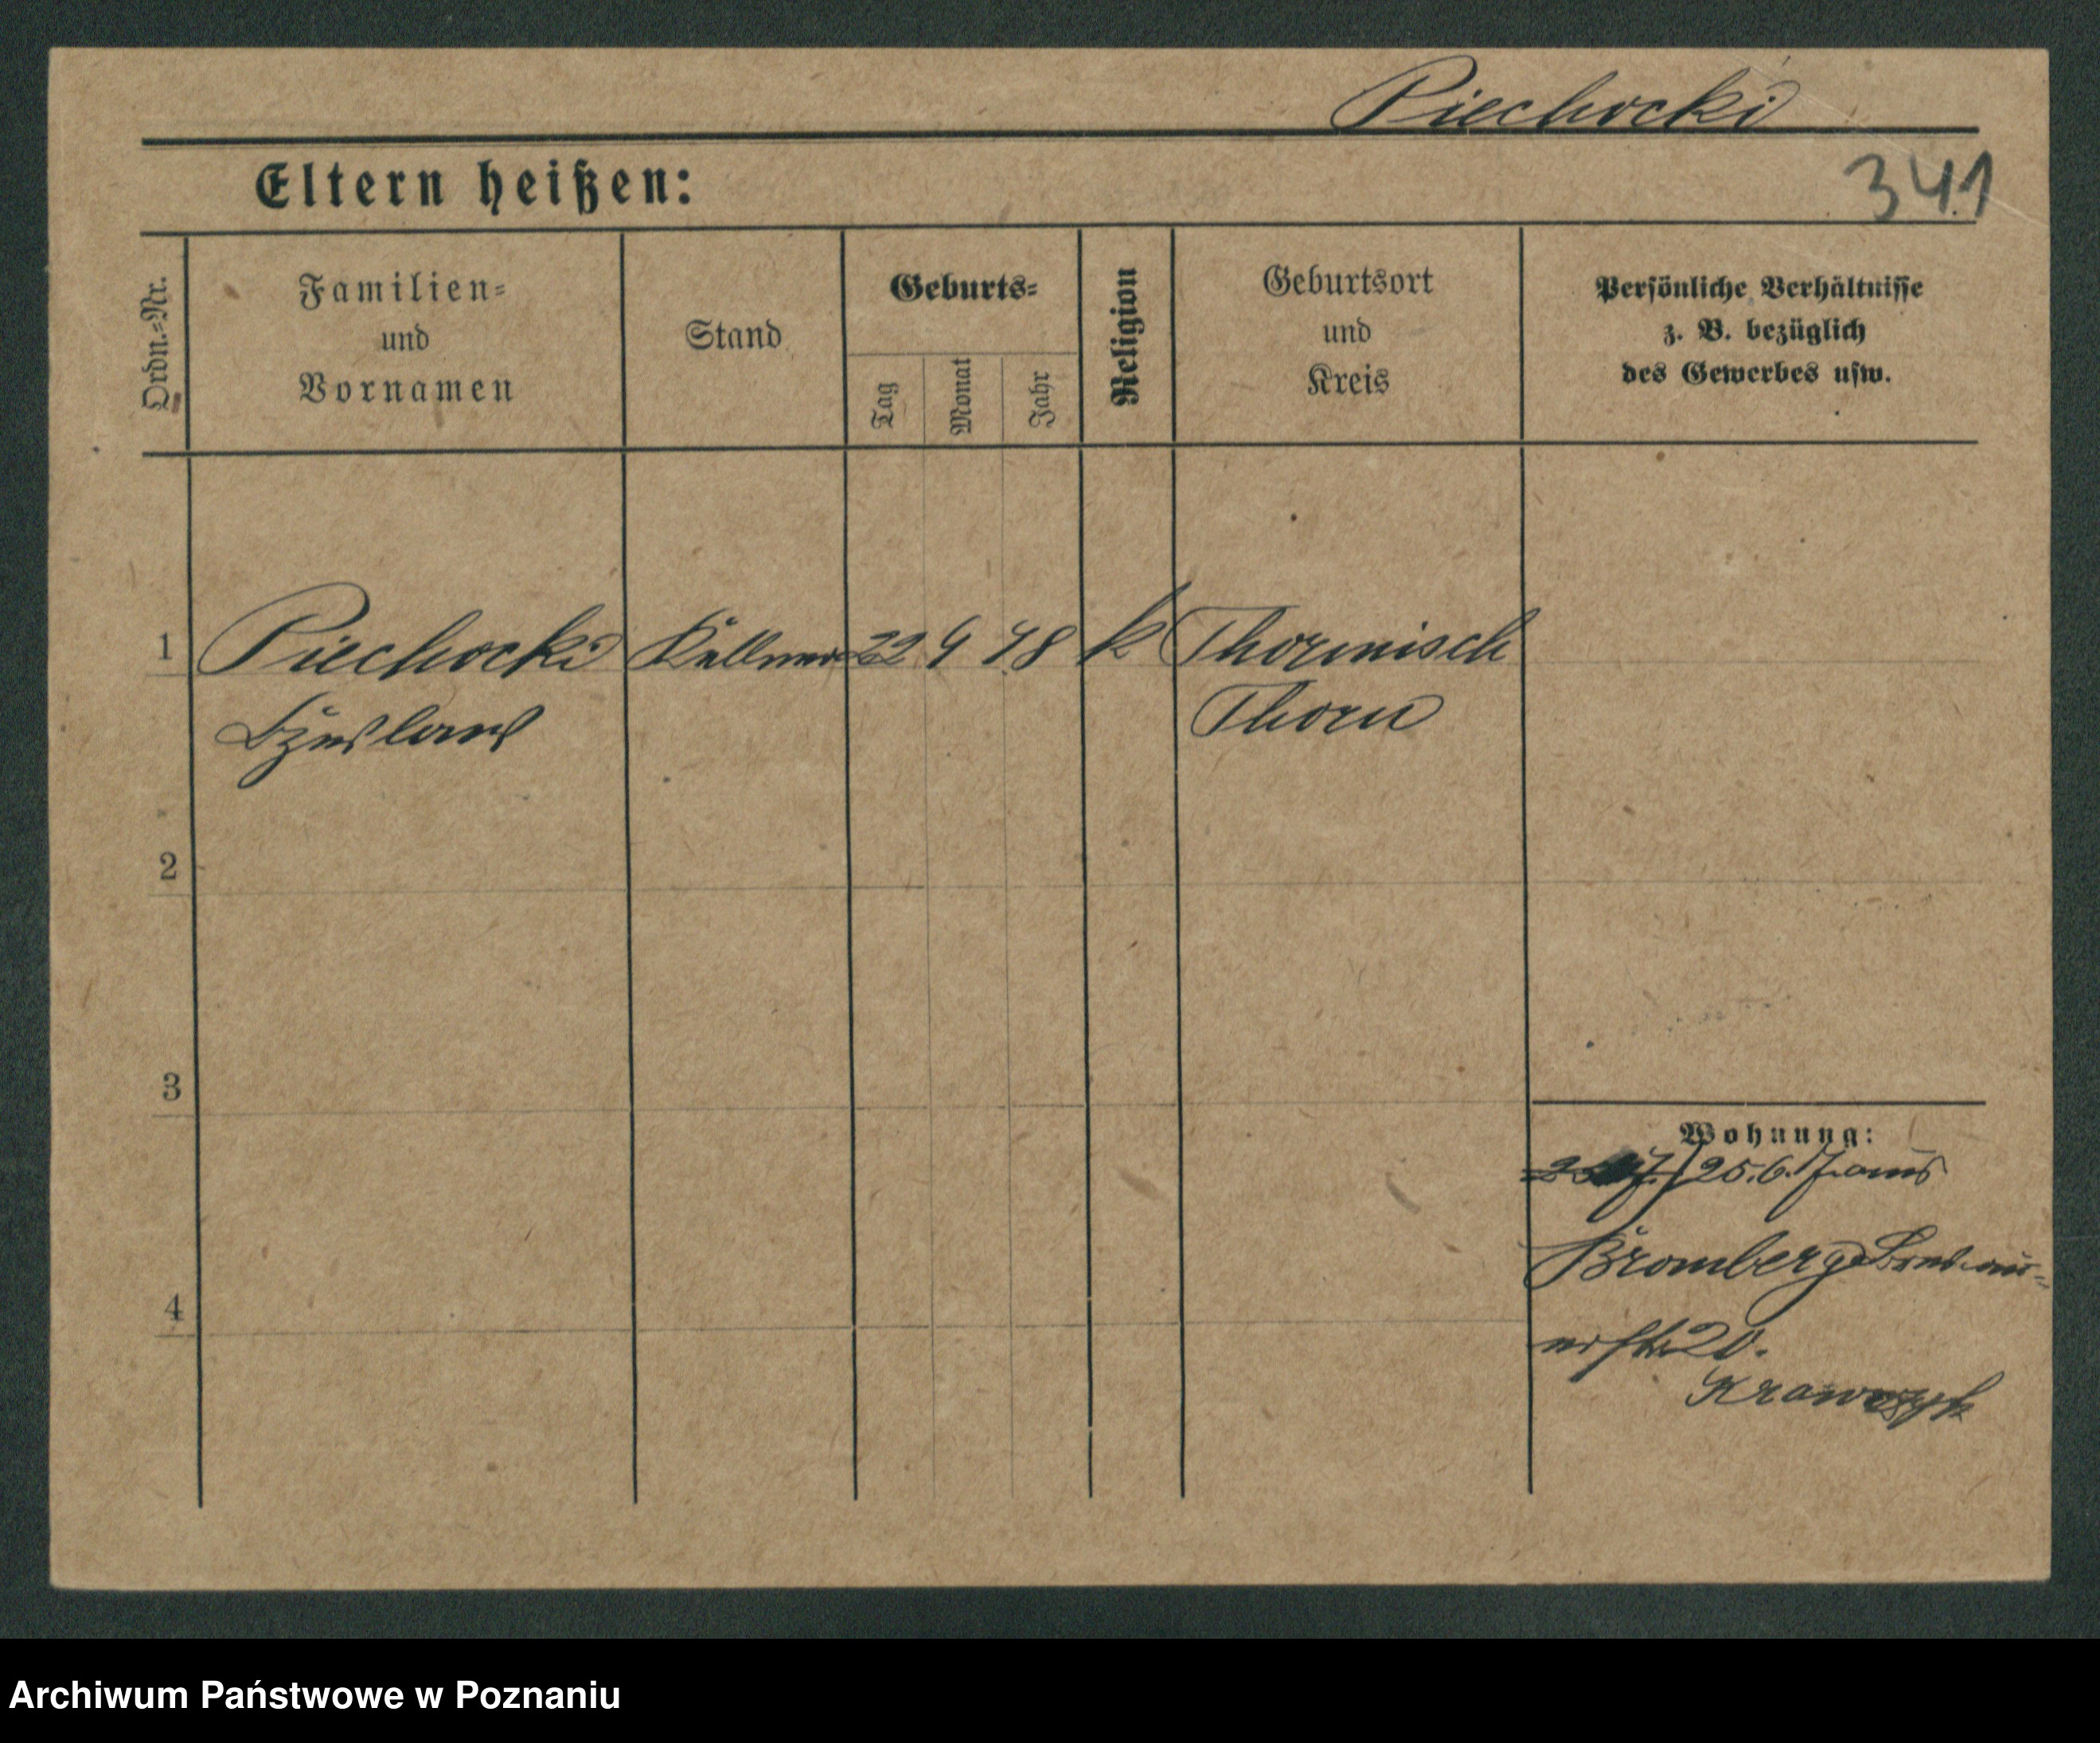 Piechocki
Eltern heißen:
341
Ordn.=Nr.
Familien=
und
Vornamen
Stand
Geburts=
Tag
Monat
Jahr
Religion
Geburtsort
und
Kreis
Persönliche Verhältnisse
z. B. bezüglich
des Gewerbes usw.
1 Piechocki Kellner 22 9 98 k Thornisch
Czeslaus Thorn
2
3
4
Wohnung:
25.6. aus
Bromberg
20.
Krawczyk
Archiwum Państwowe w Poznaniu